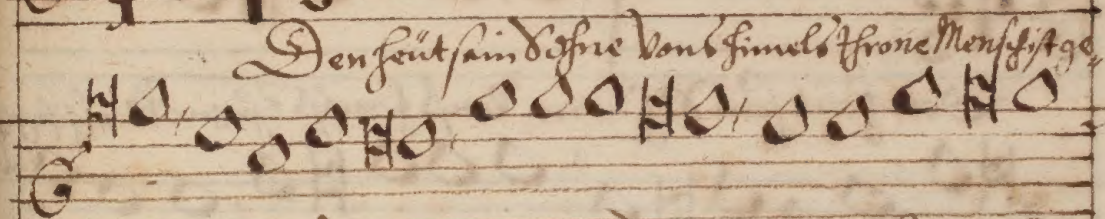 Den heüt sein Sohne vons himels throne Mensch ist ge„